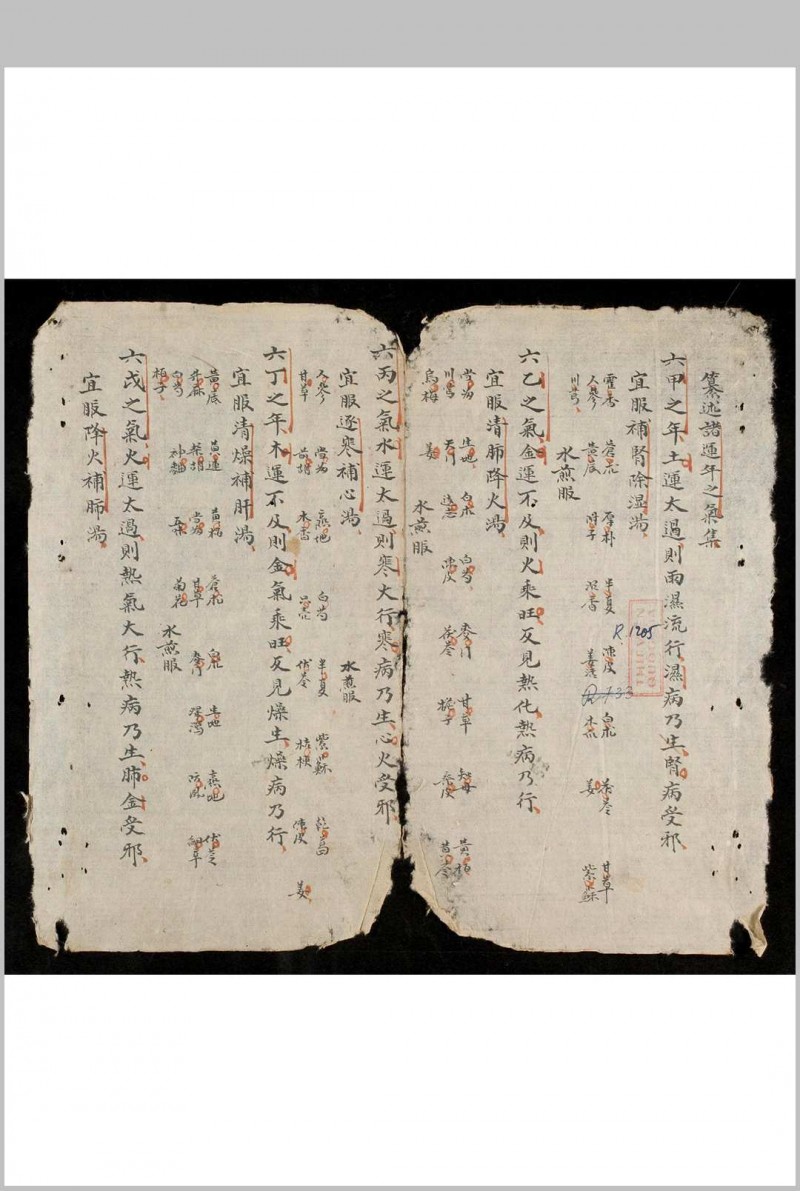 纂述諸運年之氣集
六甲之年土運太過則雨濕流行濕病乃生腎病受邪
宜服補腎除湿湯
藿香 蒼朮 厚朴 半夏 陳皮 白朮 茯苓 甘草
人參 黄芪 附子 沉香 木瓜 姜 紫蘇
川芎
水煎服
R.1205
六乙之氣金運不及則火乘旺反見熱化熱病乃行
宜服清肺降火湯
當歸 生地 白朮 白芍 麥門 甘草 知母 黄栢
川芎 天門 遠志 陳皮 茯苓
烏梅 姜
水煎服
六丙之氣水運太過則寒大行寒病乃生心火受邪
宜服逐寒補心湯
水煎服
人參 當歸 熟地 白芍 半夏 紫蘇
甘草 前胡 木香 茯苓 桔梗 陳皮 姜
六丁之年木運不及則金氣乘旺反見燥生燥病乃行
宜服清燥補肝湯
黄芪 黄連 黄栢 蒼朮 白朮 生地 熟地 茯苓
升麻 柴胡 當歸 甘草 麥門 澤瀉 防風
白芍 神麯 菊花
梔子
水煎服
六戊之氣火運太過則熱氣大行熱病乃生肺金受邪
宜服降火補肺湯